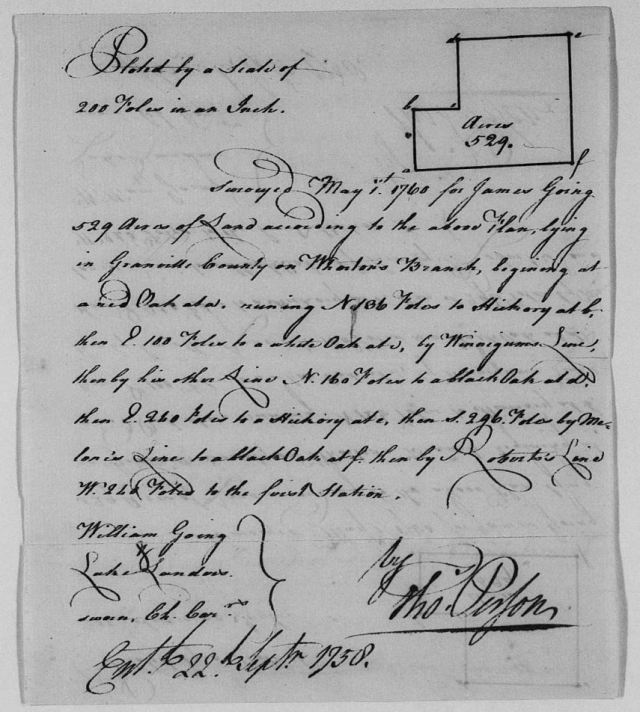 Ploted by a Scale of
200 Poles in an Inch.
d
e
b
c
Acres
529.
a
f
Surveyed May 1st. 1760 for James Going
529 Acres of Land according to the above Plan, lying
in Granville County on Wharton's Branch, begining at
a red Oak at a. runing N. 136 Poles to Hickory at b,
then E. 100 Poles to a white Oak at c, by Winnigums Line,
then by his other Line N. 160 Poles to a black Oak at d,
then E. 260 Poles to a Hickory at e, then S. 296 Poles by Ma=
lones Line to a black Oak at f. then by Roberts's Line
W. Poles to the first Station.
William Going
Luke Landers
sworn, Ch. Carrs
by
Thos. Person
Ent. 22d. Septr 1758.